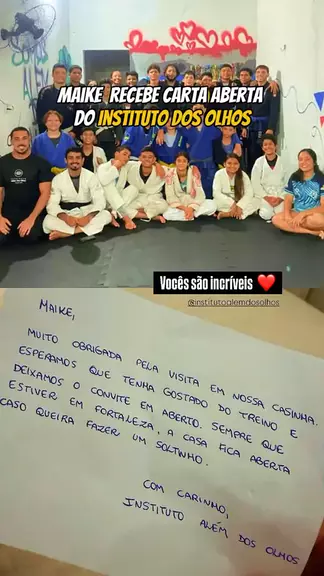 MAIKE RECEBE CARTA ABERTA
DO INSTITUTO DOS OLHOS
Vocês são incríveis ❤️
@institutoalemdosolhos
MAIKE,
MUITO OBRIGADA PELA VISITA EM NOSSA CASINHA.
ESPERAMOS QUE TENHA GOSTADO DO TREINO E
DEIXAMOS O CONVITE EM ABERTO. SEMPRE QUE
ESTIVER EM FORTALEZA, A CASA FICA ABERTA
CASO QUEIRA FAZER UM SOLTINHO.
COM CARINHO,
INSTITUTO ALÉM DOS OLHOS